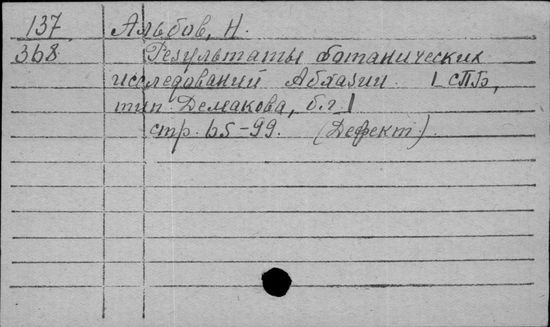 137 Альбов, Н.
368 Результаты ботанических
исследований Абхазии. [СПБ,
тип Демакова, б.г.]
стр. 65-99. (Дефект).